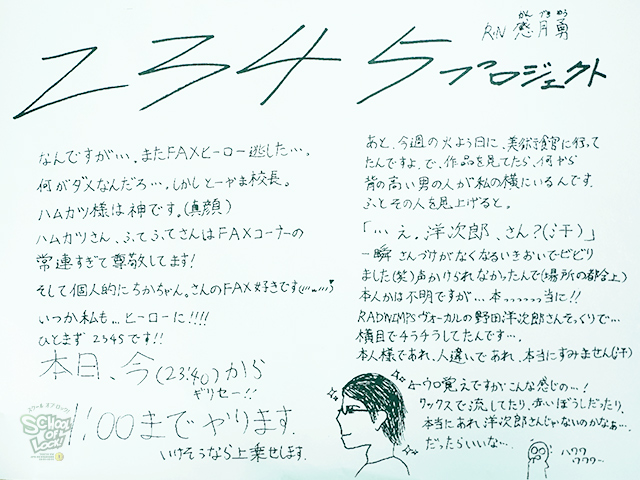 2345プロジェクト
R.N 感月勇
なんですが…、またFAXヒーロー逃した…。
何がダメなんだろ…。しかしとーやま校長。
ハムカツ様は神です。(真顔)
ハムカツさん、ふてふてさんはFAXコーナーの
常連すぎて尊敬してます!
そして個人的にちかちゃん。さんのFAX好きです
いつか私も…ヒーローに!!!!
ひとまず2345です!!
本日、今(23:40)から
ギリセー!!
1:00までやります
いけそうなら上乗せします。
あと、今週の火よう日に、美術館に行って
たんですよ。で、作品を見てたら、何から
背の高い男の人が私の横にいるんです。
ふとその人を見上げると。
「…え、洋次郎、さん?(汗)」
一瞬さんづけがなくなるいきおいでビビり
ました(笑)声かけられなかったんで(場所の都合上)
本人かは不明ですが…本っっっっっ当に!!
RADWIMPSヴォーカルの野田洋次郎さんそっくりで…
横目でチラチラしてたんです…。
本人様であれ、人違いであれ、本当にすみません(汗)
←ウロ覚えですがこんな感じの…!
ワックスで流してたり、赤いぼうしだったり、
本当にあれ洋次郎さんじゃないのかなぁ…
だったらいいな…。
ハワワ
ワワワー
スクール オブ ロック!
SCHOOL
OF
LOCK!